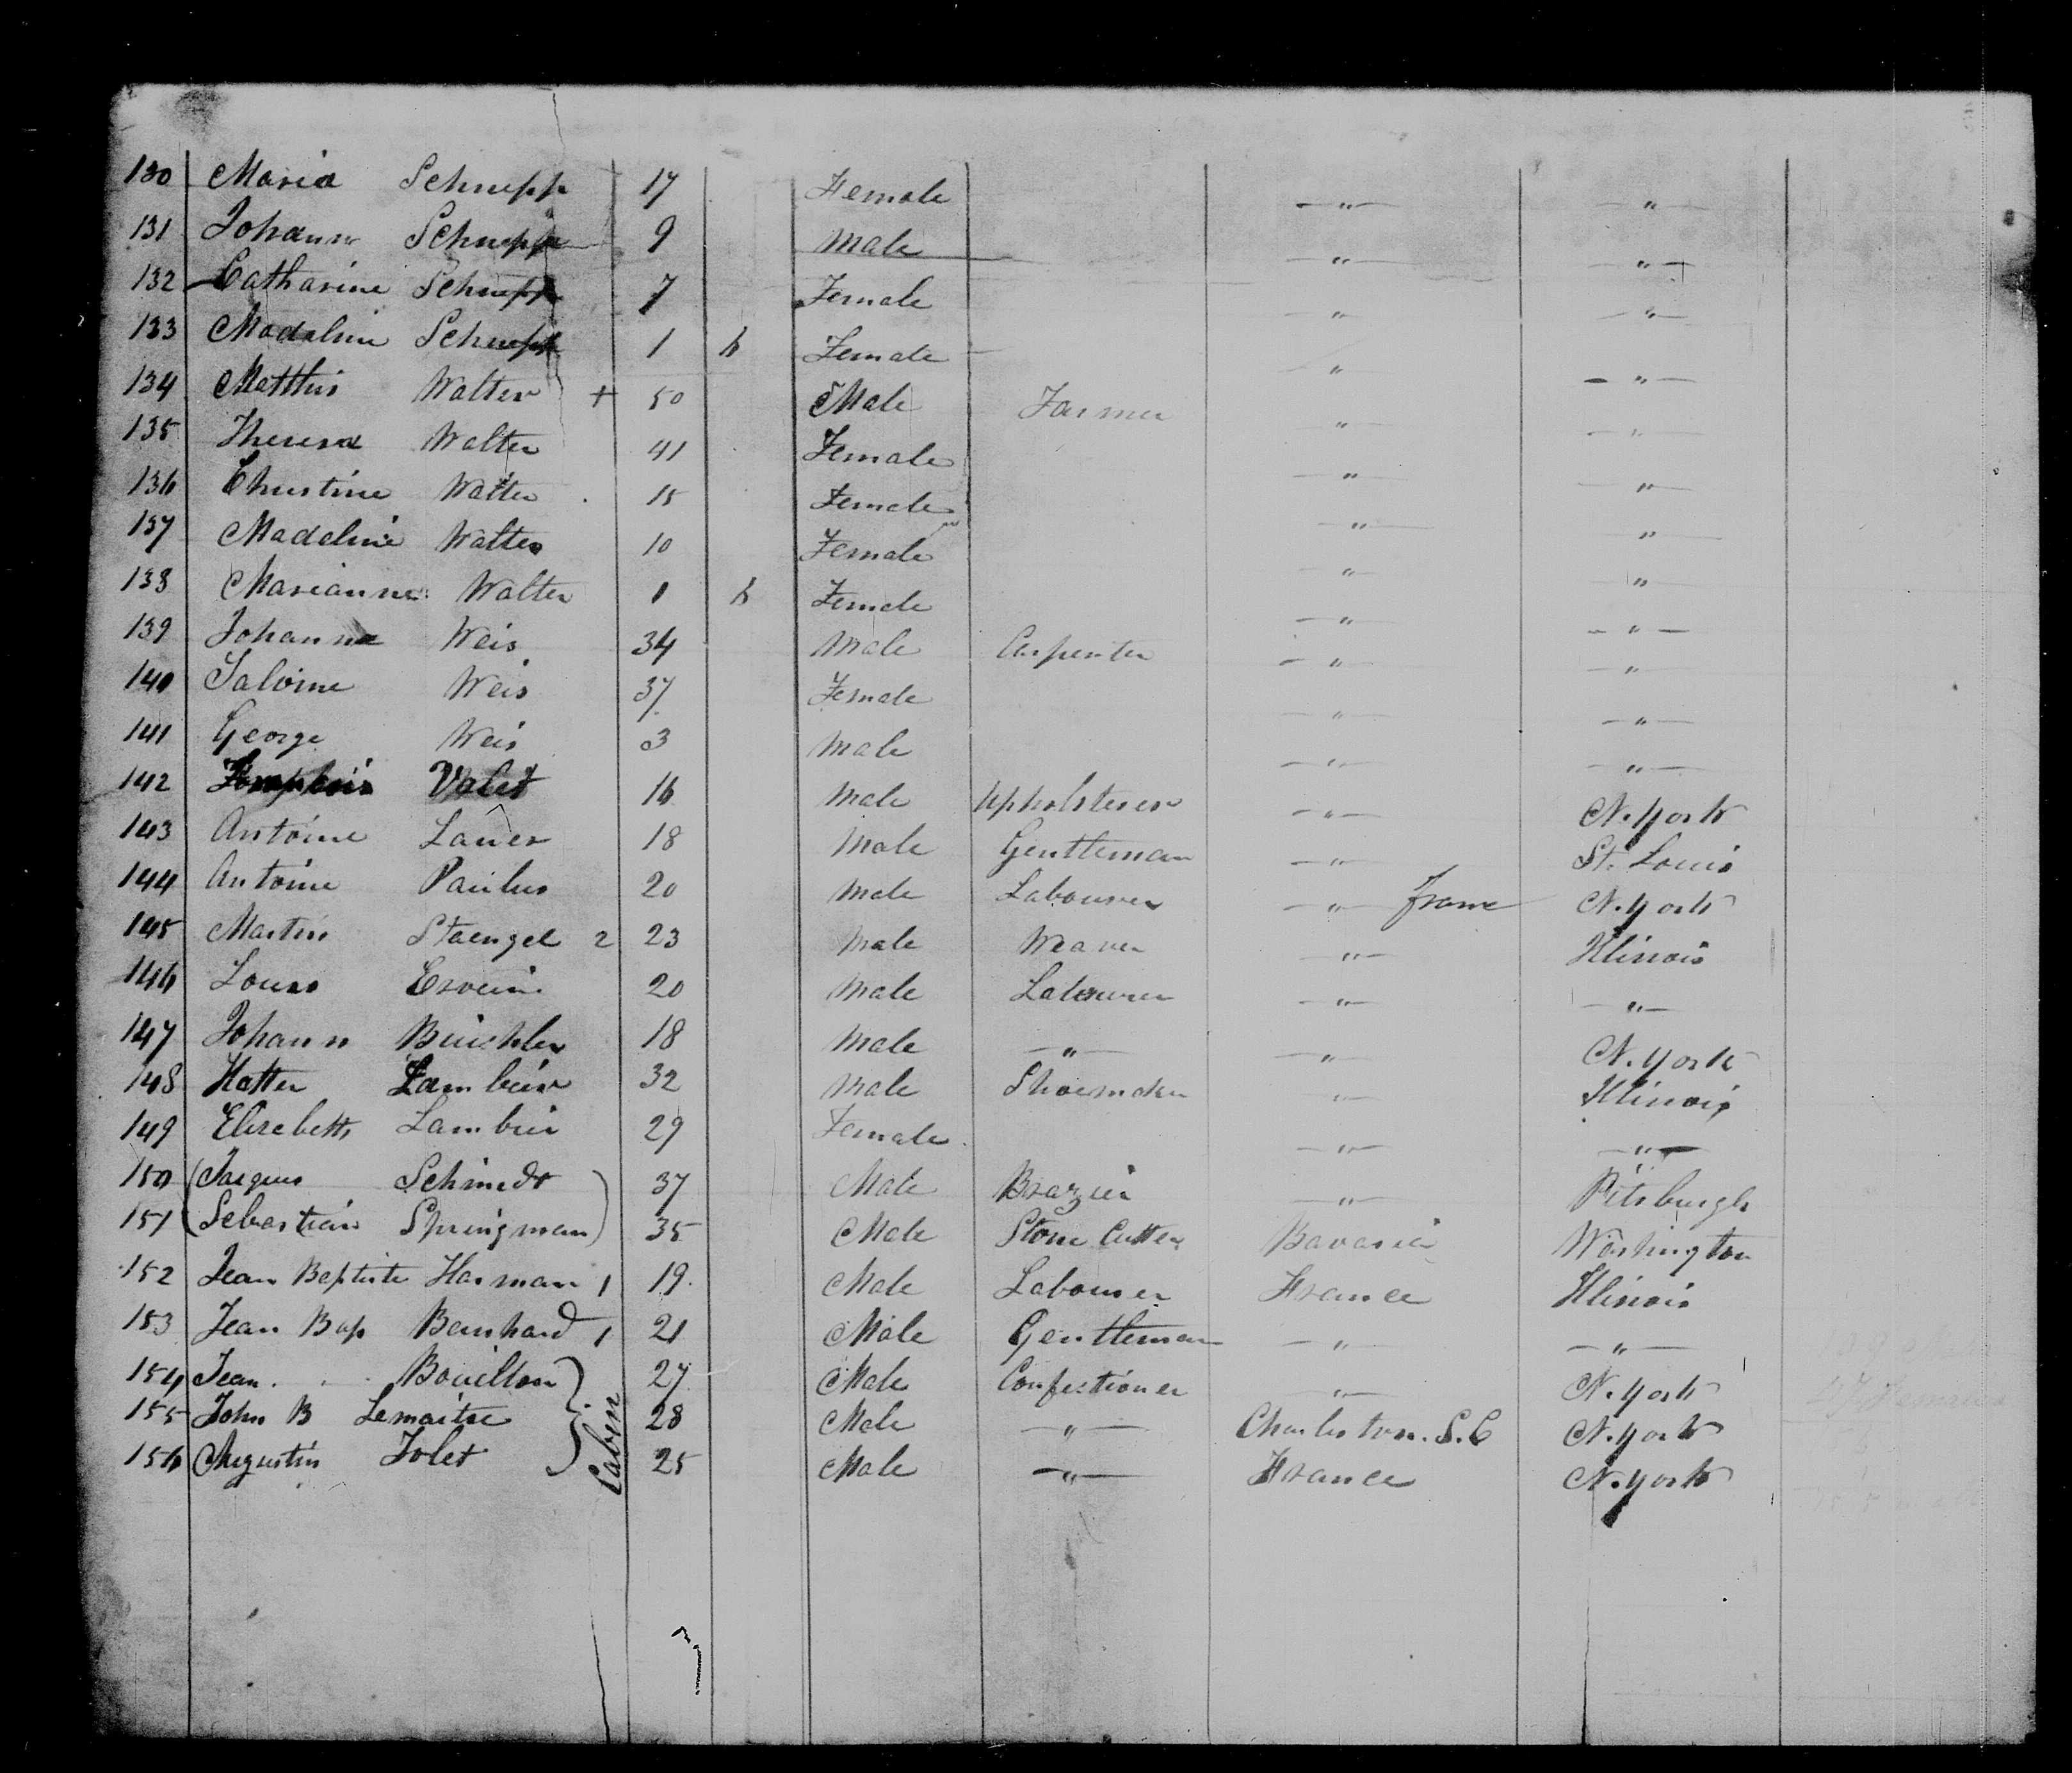 130 Maria Schnepp 17 Female — " — "
131 Johann Schnepp 9 Male — " — — " —
132 Catharine Schnepp 7 Female — " — — " —
133 Madeline Schnepp 1 Female — " — — " —
134 Matthis Walter + 50 Male Farmer — " — — " —
135 Theresa Walter 41 Female — " — — " —
136 Christine Walter 15 Female — " — — " —
137 Madeline Walter 10 Female — " — — " —
138 Marianne Walter Female — " — — " —
139 Johanne Weis 34 Male Carpenter — " — — " —
140 Salome Weis 37 Female — " — — " —
141 George Weis 3 Male — " — — " —
142 Valet 16 Male Upholsterer — " — N. York
143 Antoine Lauer 18 Male Gentleman — " — St. Louis
144 Antoine Paulus 20 Male Labourer — " — france N. York
145 Martin Staengel 2 23 Male Weaver — " — Illinois
146 Louis 20 Male Labourer — " — — " —
147 Johann Buichler 18 Male — " — — " — N. York
148 Hatter Lambein 32 Male Shoemaker — " — Illinois
149 Elisebeth Lambein 29 Female — " — — " —
150 Jacques Schmidt 37 Male Brazier — " — Pitsburgh
151 Sebastian Springman 35 Male Stone Cutter Bavaria Washington
152 Jean Baptiste Harman 1 19 Male Labourer France Illinois
153 Jean Bap Bernhard 1 21 Male Gentleman — " — — " —
154 Jean Bouillon 27 Male Confectioner — " — N. York
155 John B Lemaitre 28 Male — " — Charleston. S. C N. York
156 Augustin Jolet 25 Male — " — France N. York
Caben